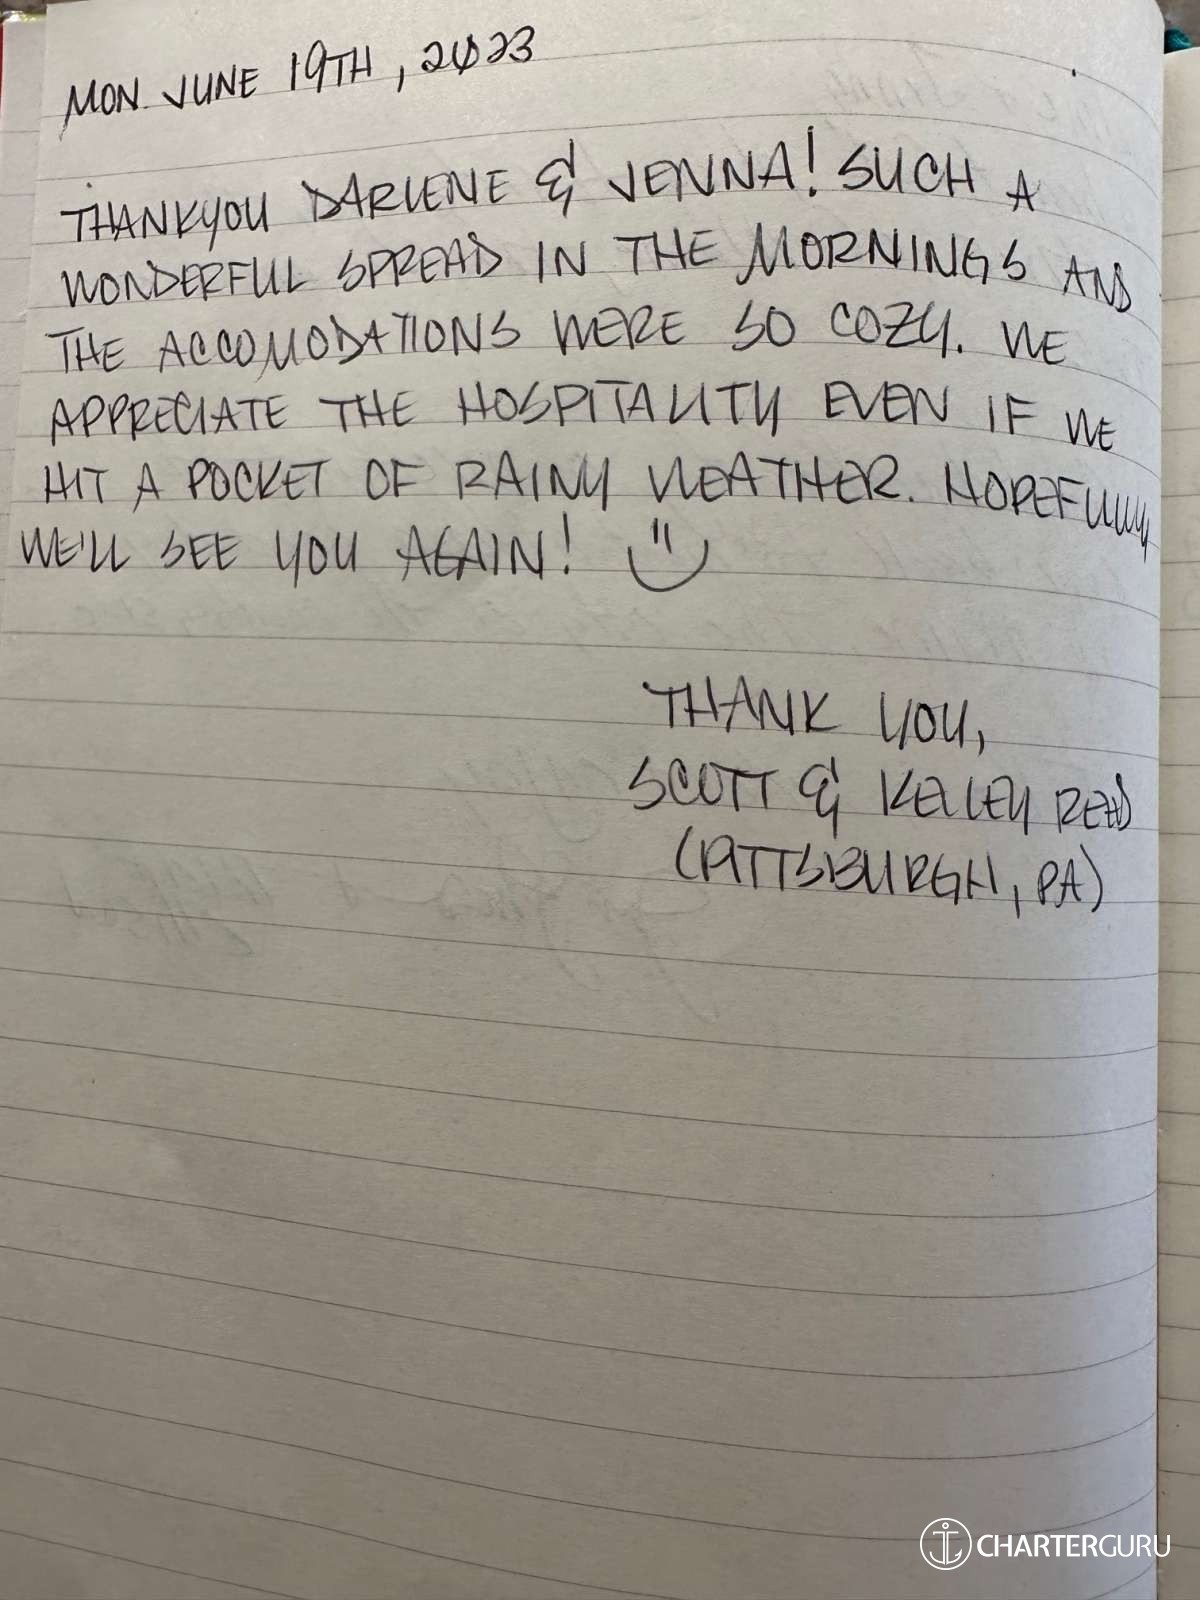 MON. JUNE 19TH, 2023
THANKYOU DARLENE & JENNA! SUCH A
WONDERFUL SPREAD IN THE MORNINGS AND
THE ACCOMODATIONS WERE SO COZY. WE
APPRECIATE THE HOSPITALITY EVEN IF WE
HIT A POCKET OF RAINY WEATHER. HOPEFULLY
WE'LL SEE YOU AGAIN!
THANK YOU,
SCOTT & KELLEY REED
(PITTSBURGH, PA)
CHARTERGURU